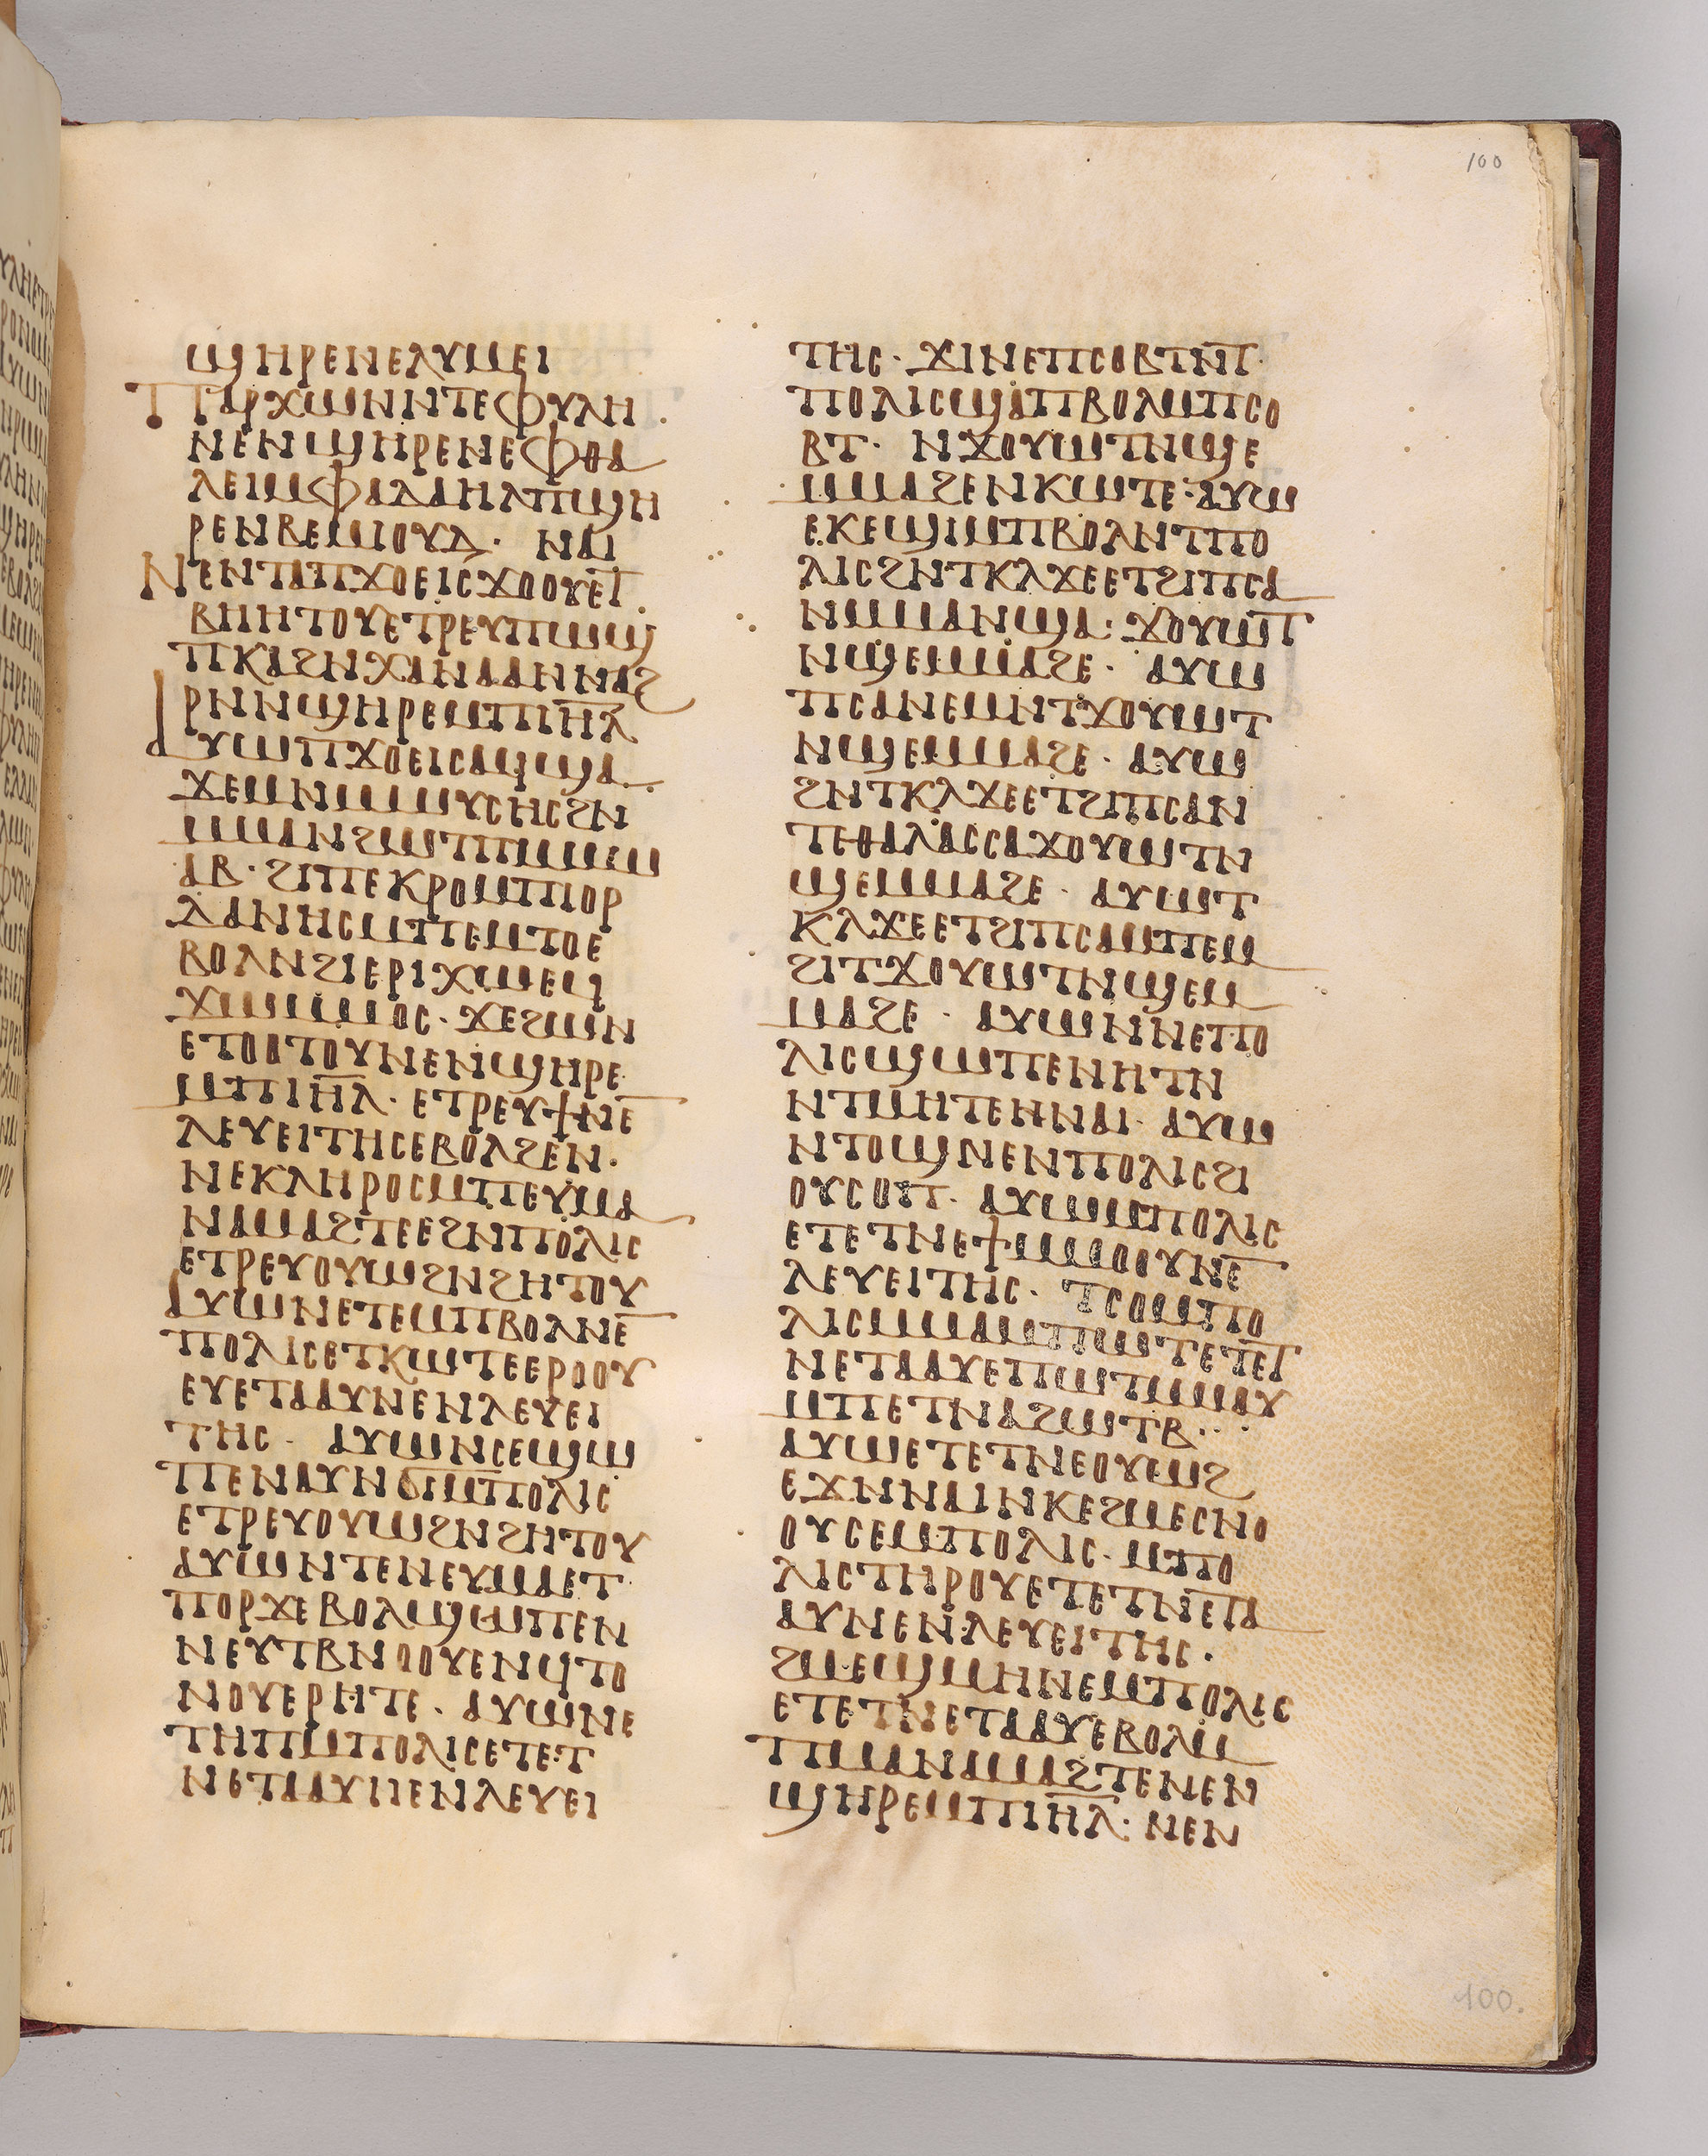 100
ϣⲏⲣⲉⲛⲉⲗⲩⲙⲉⲓ
ⲡⲁⲣⲭⲱⲛⲛⲧⲉⲫⲩⲗⲏ
ⲛⲉⲛϣⲏⲣⲉⲛⲉⲫⲑⲁ
ⲗⲉⲓⲙⲫⲁⲇⲁⲏⲗⲡϣⲏ
ⲣⲉⲛⲃⲉⲙⲓⲟⲩⲇ· ⲛⲁⲓ
ⲛⲉⲛⲧⲁⲡϫⲟⲉⲓⲥϫⲟⲟⲩⲉⲧ
ⲃⲏⲏⲧⲟⲩⲉⲧⲣⲉⲩⲡⲱϣ
ⲡⲕⲁϩⲛⲭⲁⲛⲁⲁⲛⲛⲁϩ
ⲣⲛⲛϣⲏⲣⲉⲙⲡⲓⲏ̅ⲗ̅
ⲁⲩⲱⲡϫⲟⲉⲓⲥⲁϥϣⲁ
ϫⲉⲙⲛⲙⲱⲩⲥⲏⲥϩⲛ
ⲙⲙⲁⲛϩⲱⲧⲡⲙⲙⲱ
ⲁⲃ· ϩⲓⲡⲉⲕⲣⲟⲙⲡⲓⲟⲣ
ⲇⲁⲛⲏⲥⲙⲡⲉⲙⲧⲟⲉ
ⲃⲟⲗⲛϩⲓⲉⲣⲓⲭⲱⲉϥ
ϫⲱⲙⲙⲟⲥ· ϫⲉϩⲱⲛ
ⲉⲧⲟⲟⲧⲟⲩⲛⲉⲛϣⲏⲣⲉ
ⲙⲡⲓⲏ̅ⲗ̅· ⲉⲧⲣⲉⲩϯⲛⲉ̅
ⲗⲉⲩⲉⲓⲧⲏⲥⲉⲃⲟⲗϩⲉⲛ·
ⲛⲉⲕⲗⲏⲣⲟⲥⲙⲡⲉⲩⲙⲁ
ⲛⲁⲙⲁϩⲧⲉⲉϩⲛⲡⲟⲗⲓⲥ
ⲉⲧⲣⲉⲩⲟⲩⲱϩⲛϩⲏⲧⲟⲩ
ⲁⲩⲱⲛⲉⲧⲉⲙⲡⲃⲟⲗⲛⲉ̅
ⲡⲟⲗⲓⲥⲉⲧⲕⲱⲧⲉⲉⲣⲟⲟⲩ
ⲉⲩⲉⲧⲁⲁⲩⲛⲉⲛⲗⲉⲩⲉⲓ
ⲧⲏⲥ· ⲁⲩⲱⲛⲥⲉϣⲱ
ⲡⲉⲛⲁⲩⲛϭⲓⲙⲡⲟⲗⲓⲥ
ⲉⲧⲣⲉⲩⲟⲩⲱϩⲛϩⲏⲧⲟⲩ
ⲁⲩⲱⲛⲧⲉⲛⲉⲩⲙⲁⲉⲧ
ⲡⲟⲣϫⲉⲃⲟⲗϣⲱⲡⲉⲛ
ⲛⲉⲩⲧⲃⲛⲟⲟⲩⲉⲛϥⲧⲟ
ⲛⲟⲩⲉⲣⲏⲧⲉ· ⲁⲩⲱⲛⲉ
ⲧⲏⲡⲙⲡⲟⲗⲓⲥⲉⲧⲉⲧ
ⲛⲉⲧⲁⲁⲩⲛⲉⲛⲗⲉⲩⲉⲓ
ⲧⲏⲥ· ϫⲓⲛⲉⲡⲥⲟⲃⲧⲛⲧ̅·
ⲡⲟⲗⲓⲥϣⲁⲡⲃⲟⲗⲙⲡⲥⲟ
ⲃⲧ· ⲛϫⲟⲩⲱⲧⲛϣⲉ
ⲙⲙⲁϩⲉⲛⲕⲱⲧⲉ· ⲁⲩⲱ
ⲉⲕⲉϣⲓⲙⲡⲃⲟⲗⲛⲧⲡⲟ
ⲗⲓⲥϩⲛⲧⲕⲗϫⲉⲉⲧϩⲓⲡⲥⲁ
ⲛⲙⲙⲁⲛϣⲁ· ϫⲟⲩⲱⲧ̅
ⲛϣⲉⲙⲙⲁϩⲉ· ⲁⲩⲱ
ⲡⲥⲁⲛⲉⲙⲛⲧϫⲟⲩⲱⲧ
ⲛϣⲉⲙⲙⲁϩⲉ· ⲁⲩⲱ
ϩⲛⲧⲕⲗϫⲉⲉⲧϩⲓⲡⲥⲁⲛ
ⲧⲉⲑⲁⲗⲁⲥⲥⲁϫⲟⲩⲱⲧⲛ
ϣⲉⲙⲙⲁϩⲉ· ⲁⲩⲱⲧ
ⲕⲗϫⲉⲉⲧϩⲓⲡⲥⲁⲙⲡⲉⲙ
ϩⲓⲧϫⲟⲩⲱⲧⲛϣⲉⲙ
ⲙⲁϩⲉ· ⲁⲩⲱⲛⲛⲉⲡⲟ
ⲗⲓⲥϣⲱⲡⲉⲛⲏⲧⲛ
ⲛⲧⲙⲏⲧⲉⲛⲛⲁⲓ· ⲁⲩⲱ
ⲛⲧⲟϣⲛⲉⲛⲡⲟⲗⲓⲥϩⲓ
ⲟⲩⲥⲟⲡ· ⲁⲩⲱⲙⲡⲟⲗⲓⲥ
ⲉⲧⲉⲧⲛⲉϯⲙⲙⲟⲟⲩⲛⲉ̅
ⲗⲉⲩⲉⲓⲧⲏⲥ· ⲧⲥⲟⲙⲡⲟ
ⲗⲓⲥⲙⲙⲁⲙⲡⲱⲧⲉⲧⲉⲧ̅
ⲛⲉⲧⲁⲁⲩⲉⲡⲱⲧⲙⲙⲁⲩ
ⲙⲡⲉⲧⲛⲁϩⲱⲧⲃ··
ⲁⲩⲱⲉⲧⲉⲧⲛⲉⲟⲩⲉⲙϩ
ⲉϫⲛⲛⲁⲓⲛⲕⲉϩⲙⲉⲥⲛⲟ
ⲟⲩⲥⲉⲙⲡⲟⲗⲓⲥ· ⲙⲡⲟ
ⲗⲓⲥⲧⲏⲣⲟⲩⲉⲧⲉⲧⲛⲉⲧⲁ
ⲁⲩⲛⲉⲛⲗⲉⲩⲉⲓⲧⲏⲥ·
ϩⲙⲉϣⲙⲏⲛⲉⲙⲡⲟⲗⲓⲥ
ⲉⲧⲉⲧⲛⲉⲧⲁⲁⲩⲉⲃⲟⲗⲙ
ⲡⲙⲁⲛⲁⲙⲁϩⲧⲉⲛⲉⲛ
ϣⲏⲣⲉⲙⲡⲓⲏ̅ⲗ̅· ⲛⲉⲛ
100.